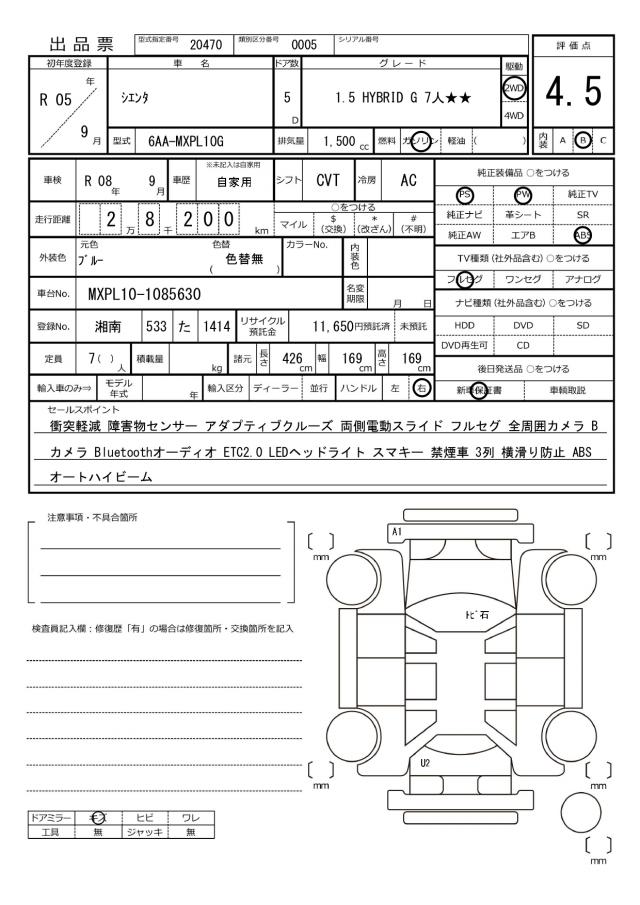 出品票 型式指定番号 20470 類別区分番号 0005 シリアル番号
評価点
4.5
初年度登録 車名 ドア数 グレード 駆動
R 05 年 9 月
シエンタ 5 D 1.5 HYBRID G 7人★★ 2WD 4WD
型式 6AA-MXPL10G 排気量 1,500 cc 燃料 ガソリン 軽油 ( ) 内装 A B C
車検 R 08 年 9 月 車歴 ※未記入は自家用 自家用 シフト CVT 冷房 AC
走行距離 2 万 8 千 2 0 0 km
○をつける
マイル $ (交換) * (改ざん) # (不明)
外装色 元色 ブルー 色替 ( 色替無 ) カラーNo. 内装色
車台No. MXPL10-1085630 名変期限 月 日
登録No. 湘南 533 た 1414 リサイクル預託金 11,650円預託済 未預託
定員 7( ) 人 積載量 kg 諸元 長さ 426 cm 幅 169 cm 高さ 169 cm
輸入車のみ⇒ モデル年式 年 輸入区分 ディーラー 並行 ハンドル 左 右
純正装備品 ○をつける
PS PW 純正TV
純正ナビ 革シート SR
純正AW エアB ABS
TV種類(社外品含む) ○をつける
フルセグ ワンセグ アナログ
ナビ種類(社外品含む) ○をつける
HDD DVD SD
DVD再生可 CD
後日発送品 ○をつける
新車保証書 車輌取説
セールスポイント
衝突軽減 障害物センサー アダプティブクルーズ 両側電動スライド フルセグ 全周囲カメラ B
カメラ Bluetoothオーディオ ETC2.0 LEDヘッドライト スマキー 禁煙車 3列 横滑り防止 ABS
オートハイビーム
注意事項・不具合箇所
検査員記入欄:修復歴「有」の場合は修復箇所・交換箇所を記入
A1
〔 〕 mm
〔 〕 mm
トビ石
U2
〔 〕 mm
〔 〕 mm
〔 〕 mm
ドアミラー キズ ヒビ ワレ
工具 無 ジャッキ 無